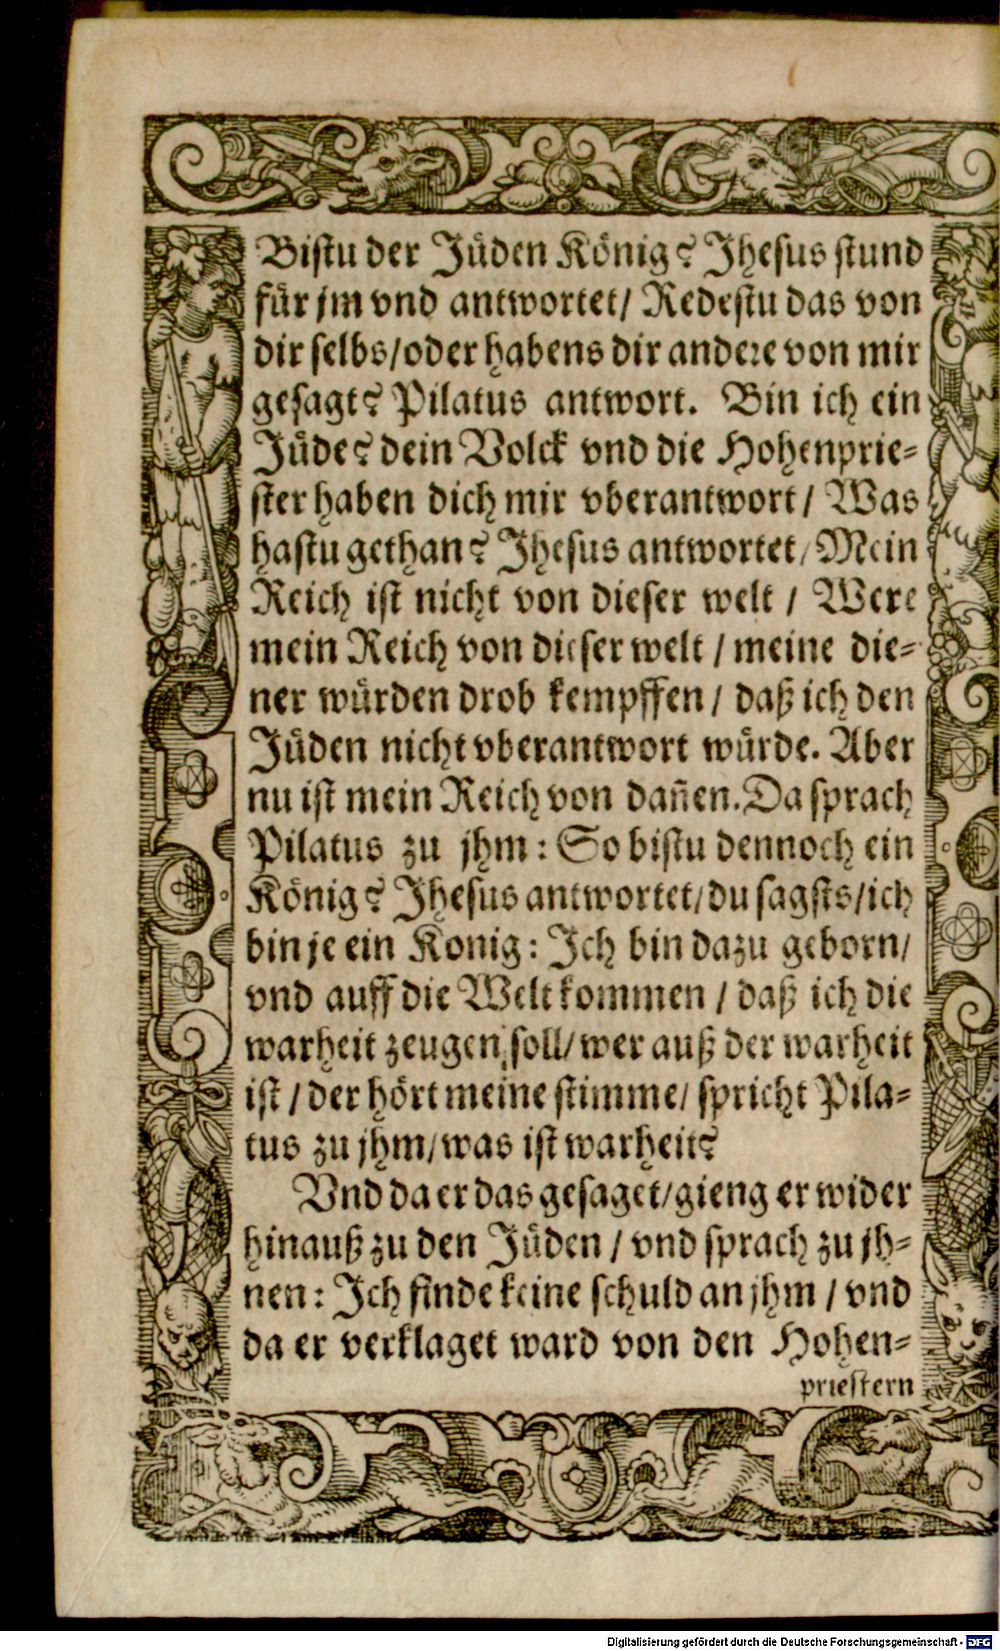 Bistu der Jüden König? Jhesus stund
für jm vnd antwortet/ Redestu das von
dir selbs/oder habens dir andere von mir
gesagt? Pilatus antwort. Bin ich ein
Jüde? dein Volck vnd die Hohenprie-
ster haben dich mir vberantwort/ Was
hastu gethan? Jhesus antwortet/Mein
Reich ist nicht von dieser welt / Were
mein Reich von dieser welt / meine die-
ner würden drob kempffen/ daß ich den
Jüden nicht vberantwort würde. Aber
nu ist mein Reich von dañen. Da sprach
Pilatus zu jhm: So bistu dennoch ein
König? Jhesus antwortet/du sagsts/ich
bin je ein Konig: Ich bin dazu geborn/
vnd auff die Welt kommen / daß ich die
warheit zeugen soll/wer auß der warheit
ist / der hört meine stimme/ spricht Pila-
tus zu jhm/was ist warheit?
Vnd da er das gesaget/gieng er wider
hinauß zu den Jüden / vnd sprach zu jh-
nen: Ich finde keine schuld an jhm / vnd
da er verklaget ward von den Hohen-
priestern
Digitalisierung gefördert durch die Deutsche Forschungsgemeinschaft - DFG